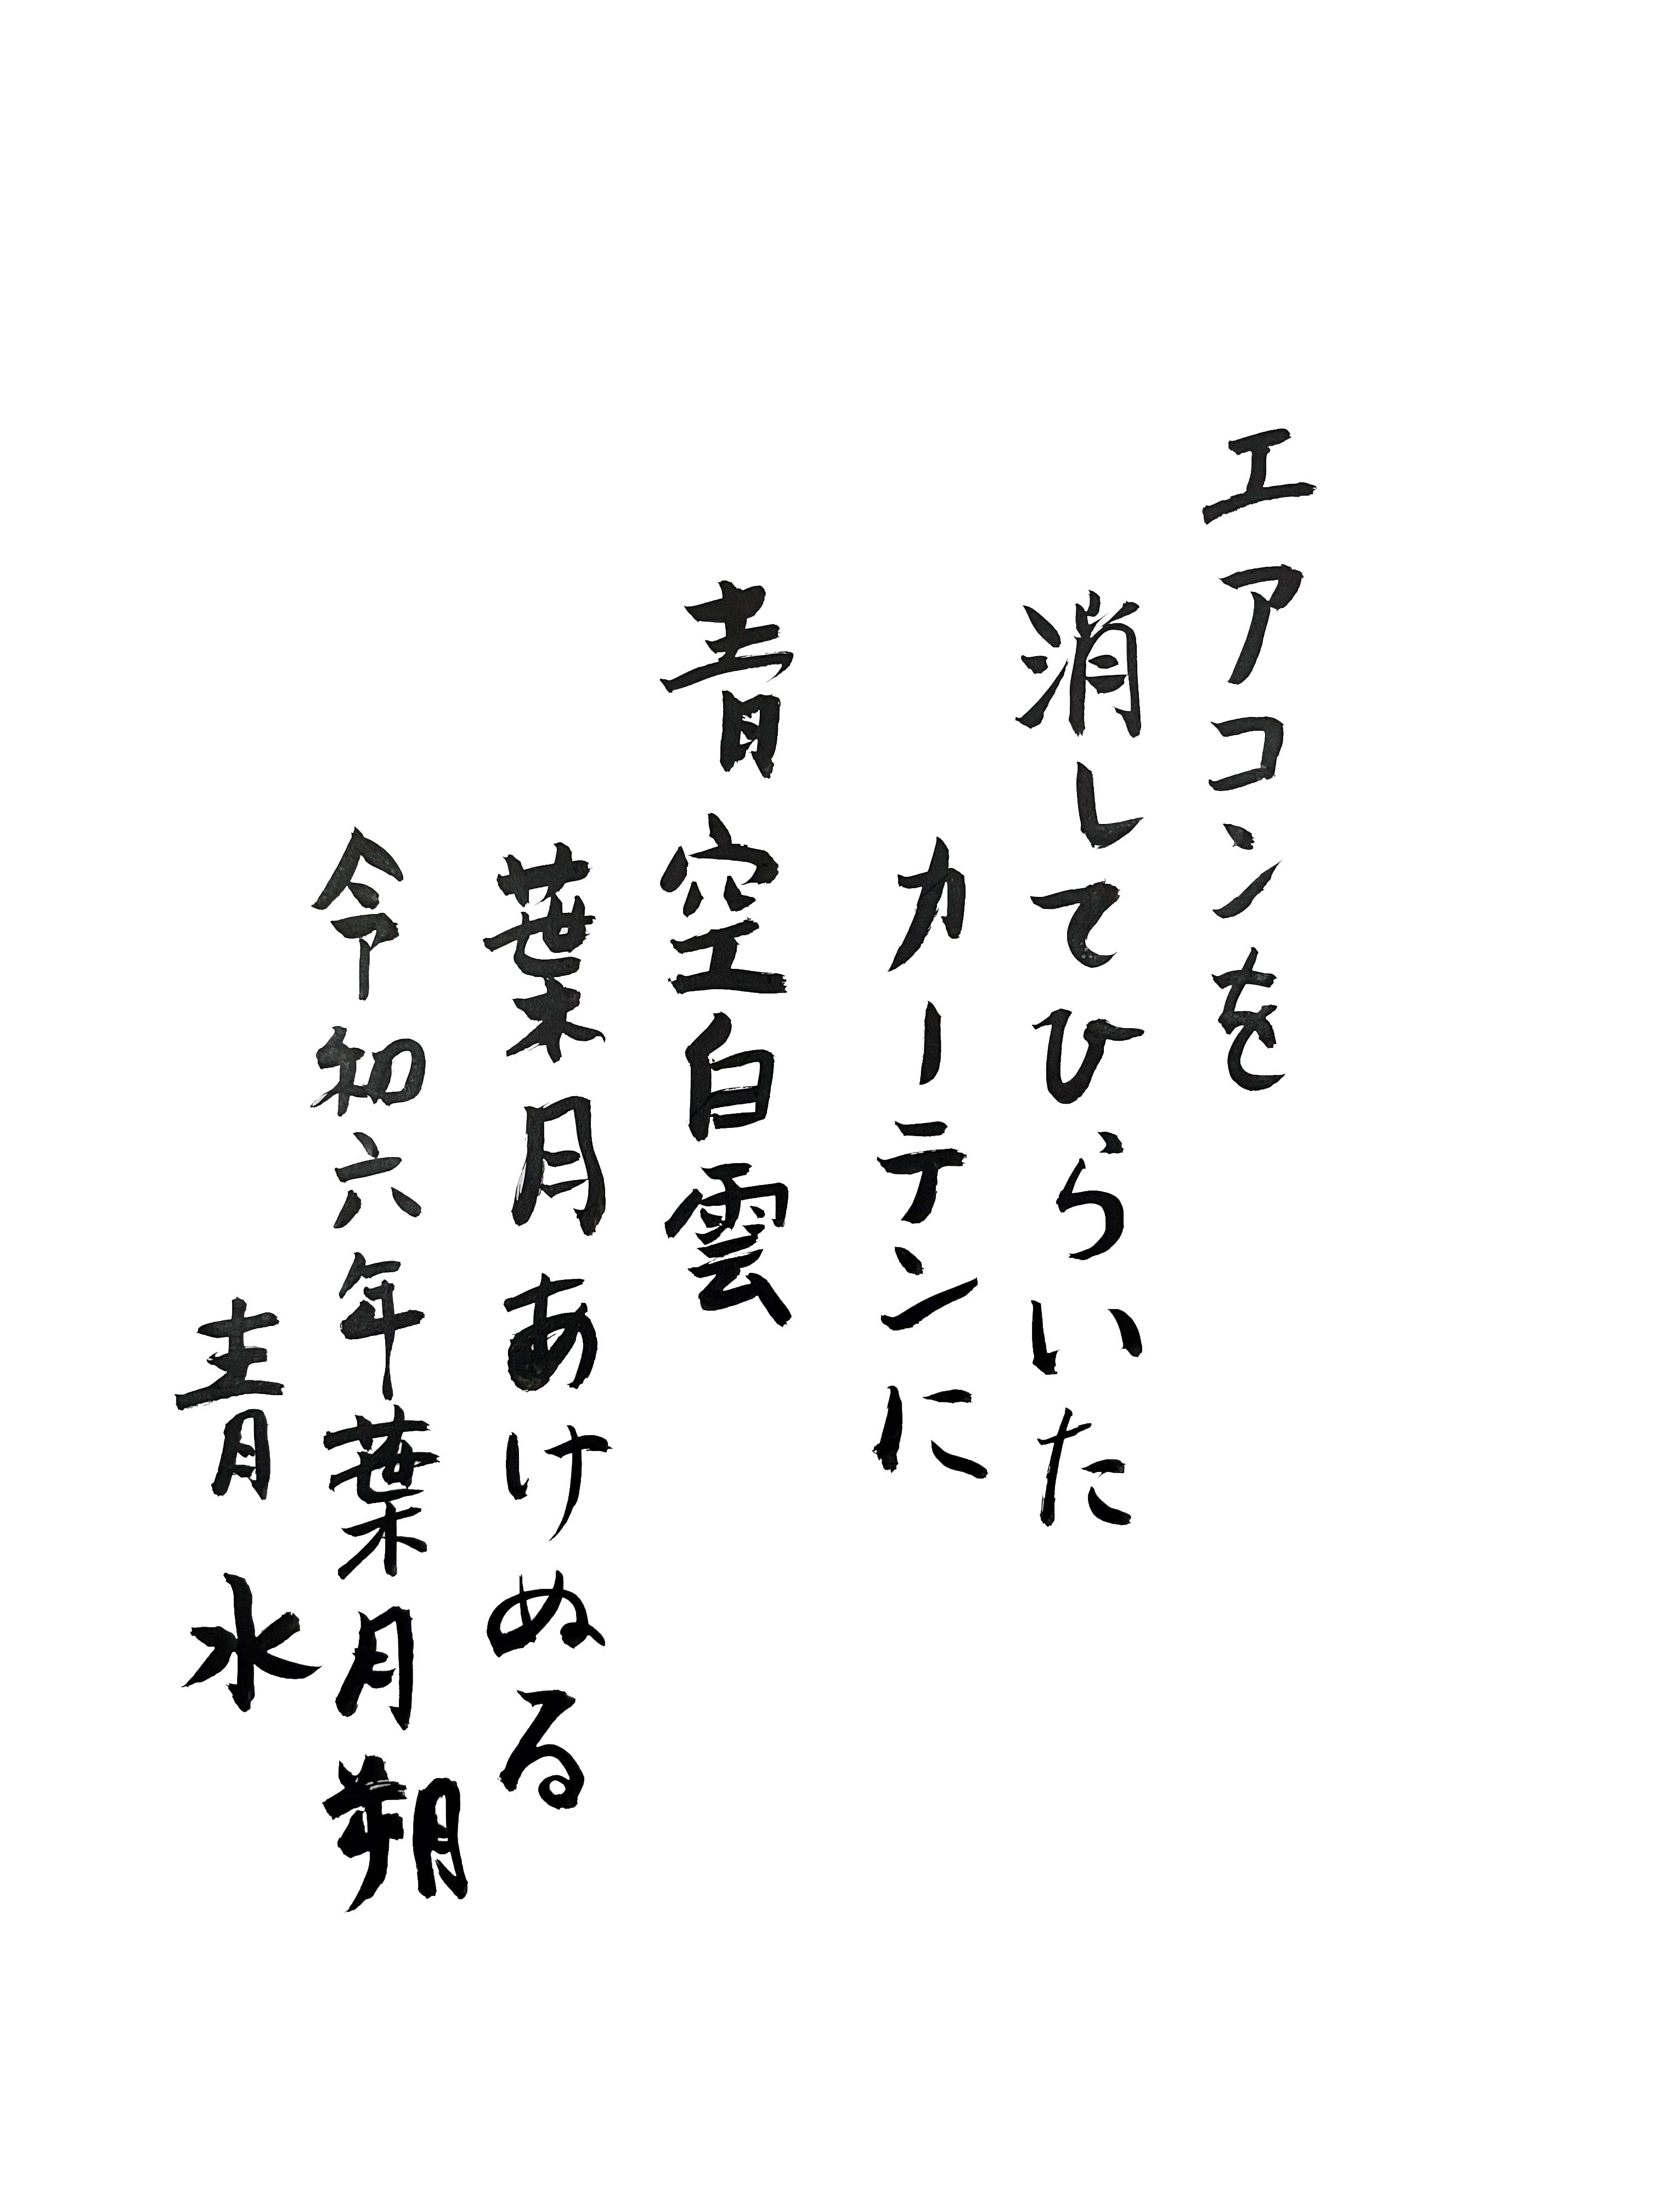 エアコンを
消してひらいた
カーテンに
青空白雲
葉月あけぬる
令和六年葉月朔
青水